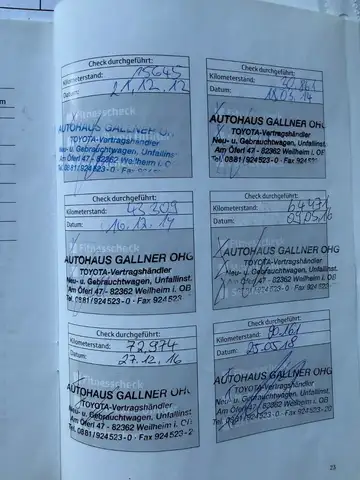 Check durchgeführt:
Kilometerstand: 15645
Datum: 21.12.12
Fitnesscheck
AUTOHAUS GALLNER OHG
TOYOTA-Vertragshändler
Neu- u. Gebrauchtwagen, Unfallinst.
Am Öferl 47 - 82362 Weilheim i. O
Tel. 0881/924523-0 · Fax 924
Check durchgeführt:
Kilometerstand:
Datum: 18.03.14
AUTOHAUS GALLNER OHG
TOYOTA-Vertragshändler
Neu- u. Gebrauchtwagen, Unfallinst.
Am Öferl 47 - 82362 Weilheim i. OB
Tel. 0881/924523-0 · Fax 924523
Check durchgeführt:
Kilometerstand: 43209
Datum: 16.12.14
Fitnesscheck
AUTOHAUS GALLNER OHG
TOYOTA-Vertragshändler
Neu- u. Gebrauchtwagen, Unfallinst.
Am Öferl 47 - 82362 Weilheim i. OB
Tel. 0881/924523-0 · Fax 924523
Check durchgeführt:
Kilometerstand: 64971
Datum: 09.05.16
Fitnesscheck
AUTOHAUS GALLNER OHG
TOYOTA-Vertragshändler
Neu- u. Gebrauchtwagen, Unfallinst.
Am Öferl 47 - 82362 Weilheim i. OB
Tel. 0881/924523-0 · Fax 924523
Check durchgeführt:
Kilometerstand: 72974
Datum: 27.12.16
Fitnesscheck
AUTOHAUS GALLNER OHG
TOYOTA-Vertragshändler
Neu- u. Gebrauchtwagen, Unfallinst.
Am Öferl 47 - 82362 Weilheim i. OB
Tel. 0881/924523-0 · Fax 924523-2
Check durchgeführt:
Kilometerstand: 90161
Datum: 25.05.18
AUTOHAUS GALLNER OHG
TOYOTA-Vertragshändler
Neu- u. Gebrauchtwagen, Unfallinst.
Am Öferl 47 - 82362 Weilheim i. OB
Tel. 0881/924523-0 · Fax 924523-20
23